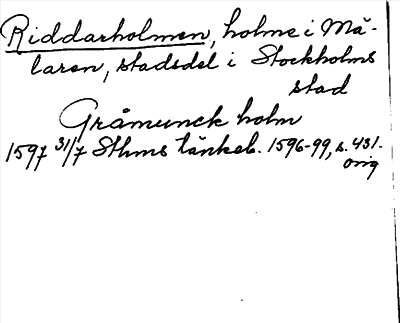 Riddarholmen, holme i Mä-
laren, stadsdel i Stockholms
stad
Gråmunck holm
1597 31/7 Sthms tänkeb. 1596-99, s. 431.
orig